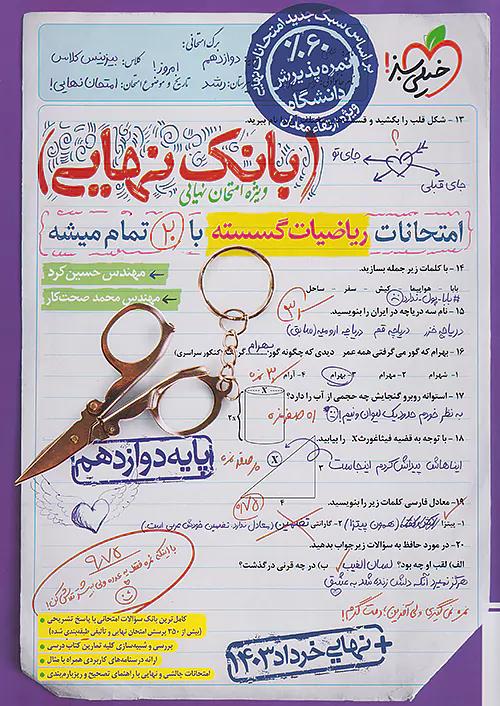 برگ امتحانی:
دوازدهم
امروز! کلاس: بیزنس کلاس
رشد تاریخ و موضوع امتحان: امتحان نهایی!
براساس سبک جدید امتحانات نهایی
۶۰٪
نمره پذیرش
دانشگاه
خیلی سبز!
۱۳ - شکل قلب را بکشید و
نام ببرید.
؟
جای تو
جای قبلی
(بانک نهایی)
ویژه امتحان نهایی
امتحانات ریاضیات گسسته با ۲۰ تمام میشه
مهندس حسین کرد
مهندس محمد صحت‌کار
۱۴ - با کلمات زیر جمله بسازید.
بابا - هواپیما - کیش - سفر - ساحل
#بابا-پول-ندارد
۱۵ - نام سه دریاچه در ایران را بنویسید.
دریاچه خزر دریاچه قم دریاچه ارومیه (سابق)
۱۶ - بهرام که گور می‌گرفتی همه عمر دیدی که چگونه گور بهرام گرفت (کنکور سراسری)
۱- شهرام ۲- بهرام ۳- بهرام ۴- آرام
۱۷ - استوانه روبرو گنجایش چه حجمی از آب را دارد؟
به نظر خودم حدود یک لیوان و نیم!
۱۸ - با توجه به قضیه فیثاغورث X را بیابید.
ایناهاش پیداش کردم اینجاست
X
۳
۴
پایه دوازدهم
۱۹ - معادل فارسی کلمات زیر را بنویسید.
۱- پیتزا (همون پیتزا) ۲- گارانتی تضمین (معادل ندارد. تضمین خودش عربی است)
۲۰- در مورد حافظ به سؤالات زیر جواب بدهید.
الف) لقب او چه بود؟ لسان الغیب ب) در چه قرنی درگذشت؟
هرگز نمیرد آنکه دلش زنده شد به عشق
۹/۷۵
کامل‌ترین بانک سؤالات امتحانی با پاسخ تشریحی
(بیش از ۲۵۰ پرسش امتحان نهایی و تألیفی طبقه‌بندی شده)
بررسی و شبیه‌سازی کلیه تمارین کتاب درسی
ارائه درسنامه‌های کاربردی همراه با مثال
امتحانات چالشی و نهایی با راهنمای تصحیح و ریزبارم‌بندی
+ نهایی خرداد ۱۴۰۳